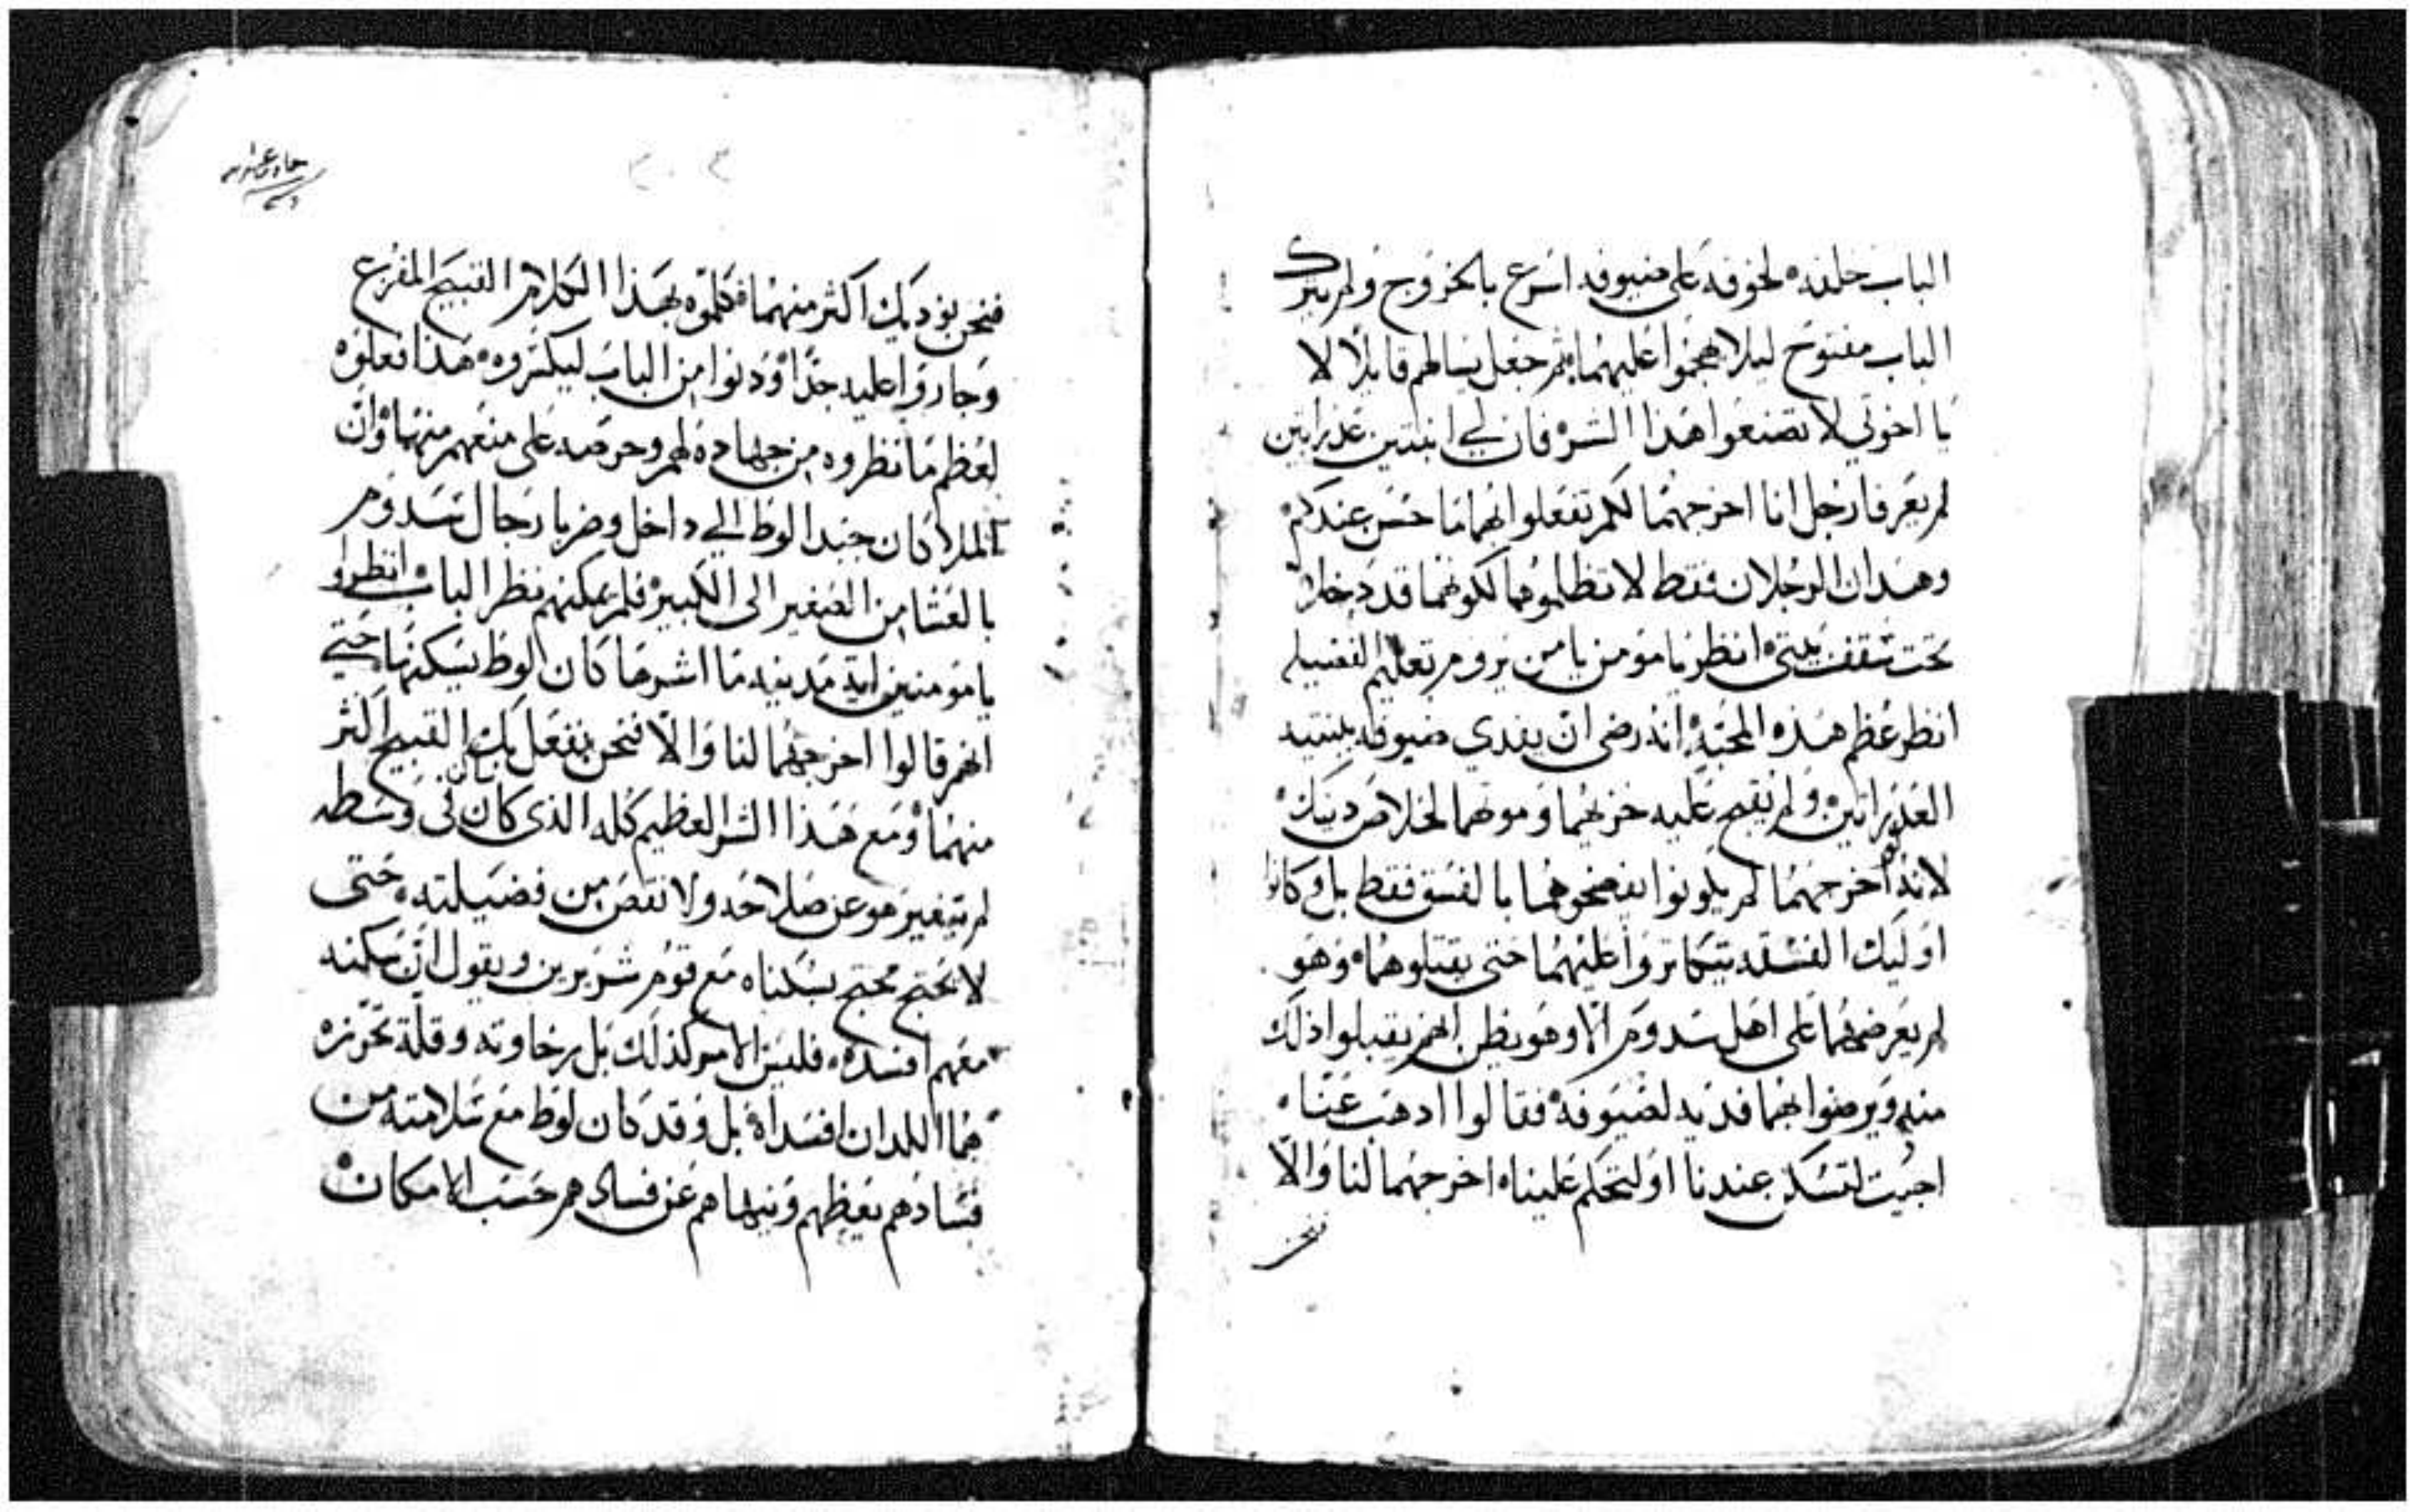 الباب خلفه لخوفه على ضيوفه اسرع بالخروج ولم يترك
الباب مفتوح ليلا يهجموا عليهما ثم جعل يسالهم قايلا لا
يا اخوتي لا تصنعوا هذا الشر فان لي ابنتين عذراتين
لم يعرفا رجل انا اخرجهما لكم تفعلوا بهما ما حسن عندكم
وهذان الرجلان فقط لا تظلموهما لكونهما قد دخلا
تحت سقف بيتي انظر يا مومن يا من يروم تعليم الفضيله
انظر عظم هذه المحبة انه رضي ان يفدي ضيوفه ببنتيه
العذراتين ولم يقبح عليه خزيهما وموتهما لخلاص دينك
لانه لو اخرجهما لم يكونوا يفضحوهما بالفسق فقط بل وكانوا
اوليك الفسقه يتكاتروا عليهما حتى يقتلوهما وهو
لم يعرضهما على اهل سدوم الا وهو يظن انهم يقبلوا ذلك
منه ويرضوا بهما فديه لضيوفه فقالوا اذهب عنا
اجيت لتسكن عندنا او لتحكم علينا اخرجهما لنا والا
فنحن
٣٠٣
حادي عشر
فنحن نوديك اكثر منهما فكلموه بهذا الكلام القبيح المفزع
وجاروا عليه جدا ودنوا من الباب ليكسروه هذا فعلوه
لعظم ما نظروه من جهاده لهم وحرصه على منعهم منهما وان
الملاكان جبدا لوط الي داخل وضربا رجال سدوم
بالعشا من الصغير الى الكبير فلم يمكنهم نظر الباب انظروا
يا مومنين اية مدينه ما اشرها كان لوط يسكنها حتي
انهم قالوا اخرجهما لنا والا فنحن نفعل بك القبيح اكثر
منهما ومع هذا الشر العظيم كله الذي كان في وسطه
لم يتغير هو عن صلاحه ولا نقص من فضيلته حتى
لا يحتج محتج بسكناه مع قوم شريرين ويقول ان سكنه
معهم افسده فليس الامر كذلك بل رخاوته وقلة تحرزه
هما اللدان افسداه بل وقد كان لوط مع سلامته من
فسادهم يعظهم وينهاهم عن فسادهم حسب الامكان